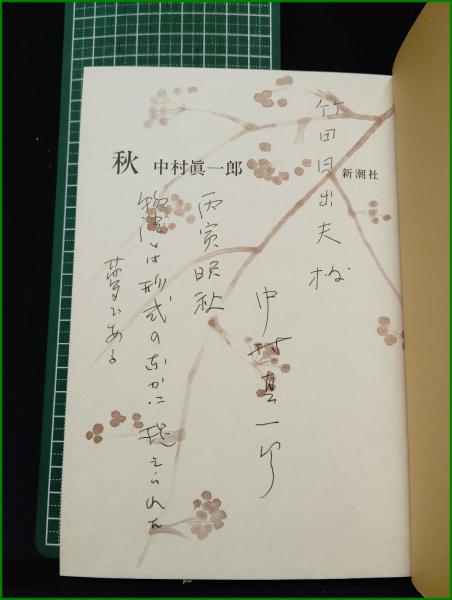 秋 中村眞一郎
新潮社
竹田日出夫 様
中村真一郎
丙寅晩秋
物語とは形式のなかに捉えられた
夢である